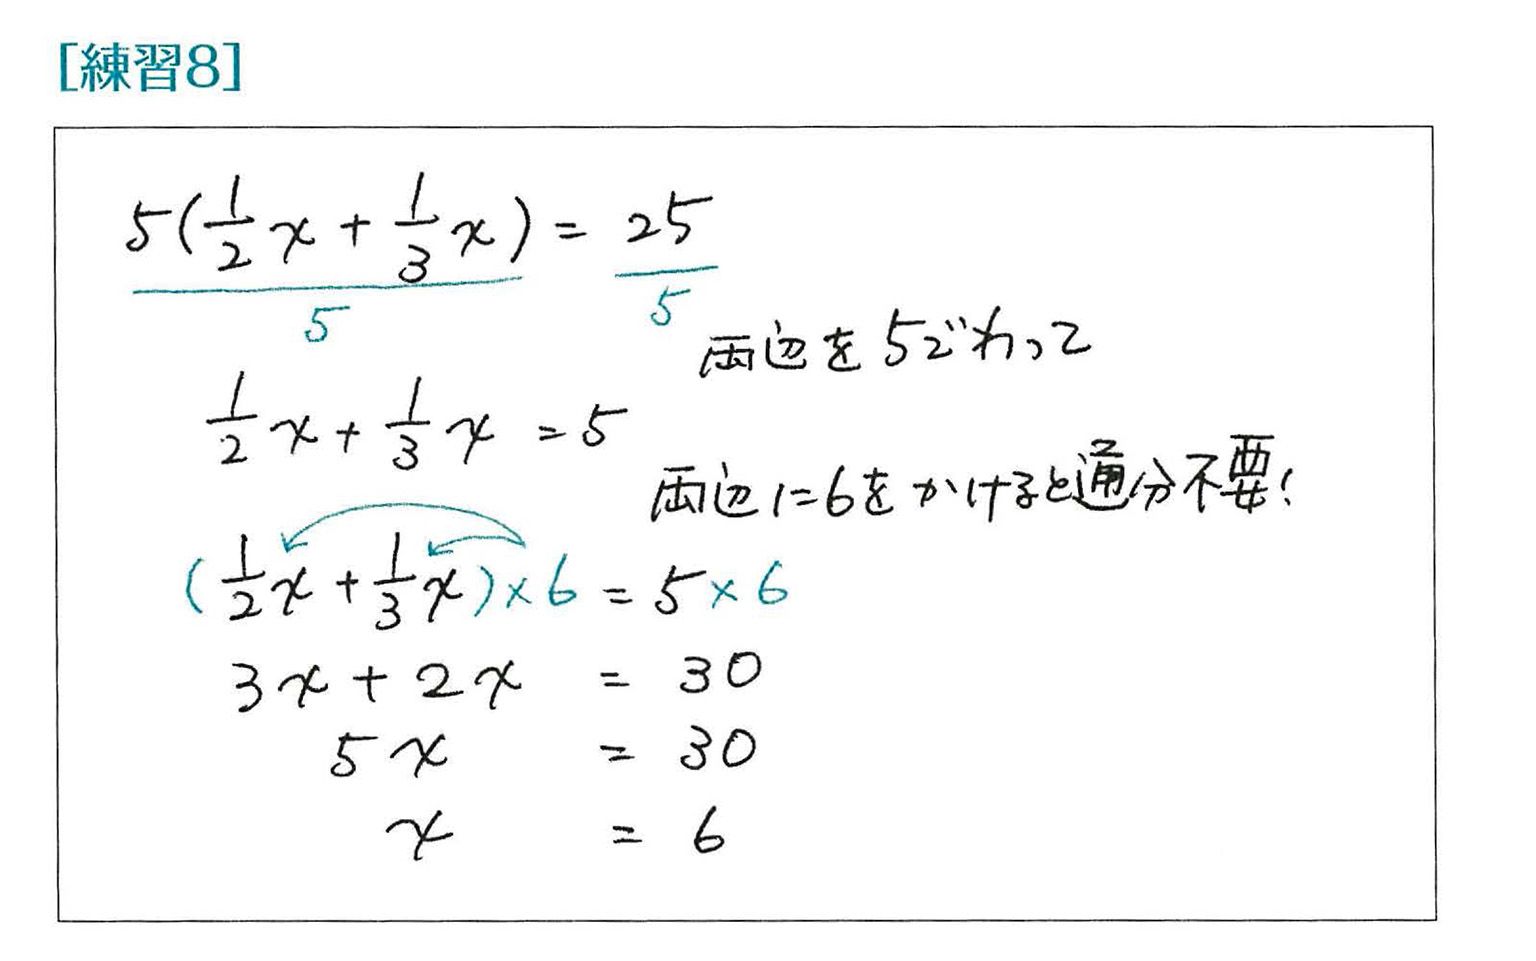 [練習8]
5(1/2 x + 1/3 x) = 25
5 5
両辺を5でわって
1/2 x + 1/3 x = 5
両辺に6をかけると通分不要!
(1/2 x + 1/3 x) × 6 = 5 × 6
3x + 2x = 30
5x = 30
x = 6